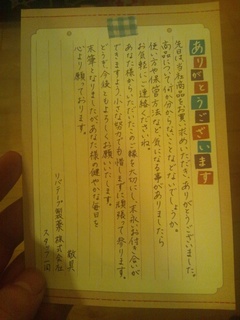 ありがとうございます
先日は、当社商品をお買い求めいただき、ありがとうございました。
商品についてわからないことなどないでしょうか。
使い方や保管方法など、気になる事がありましたら
お気軽にご連絡くださいね。
あなた様からいただいたこのご縁を大切にし、末永いお付き合いが
できますよう、小さな努力でも惜しまずに頑張って参ります。
どうぞ、今後ともよろしくお願いいたします。
末筆となりましたが、あなた様の健やかな毎日を
心より願っております。
敬具
リバテープ製薬株式会社
スタッフ一同